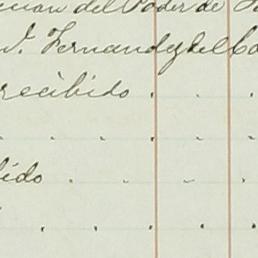 del Poder de
J. Fernandez del Ca
recibido . . .
. . . .
ido . . . .
. . . .